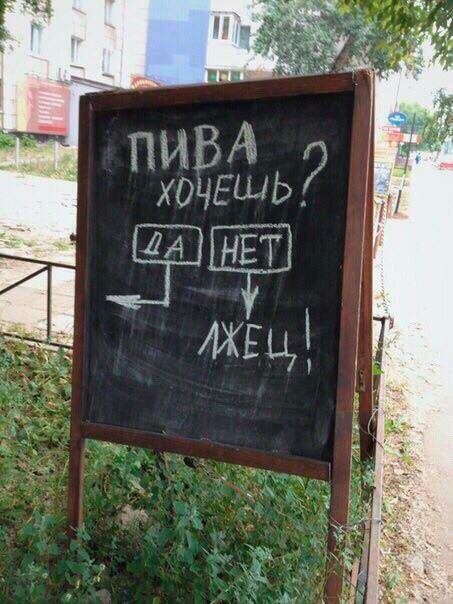 ПИВА
ХОЧЕШЬ?
ДА НЕТ
ЛЖЕЦ!